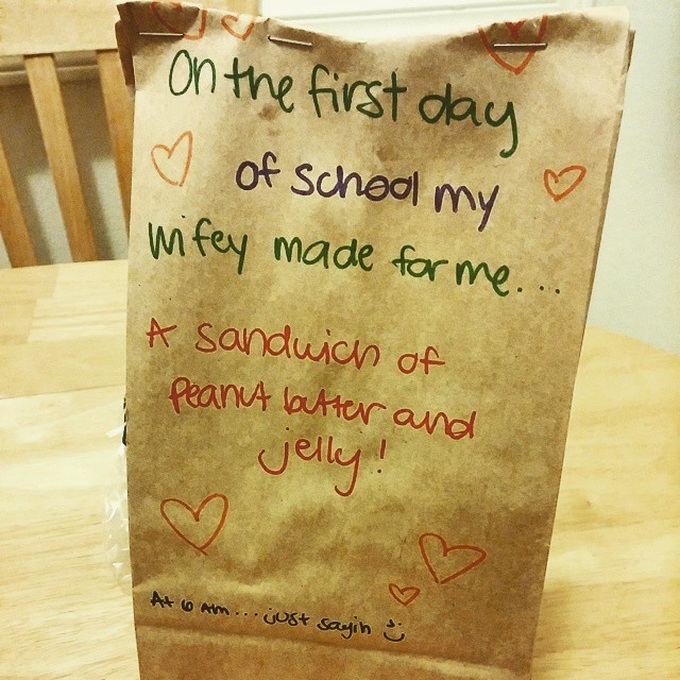 On the first day
of school my
wifey made for me...
A sandwich of
Peanut butter and
jelly!
At 6 AM... just sayin